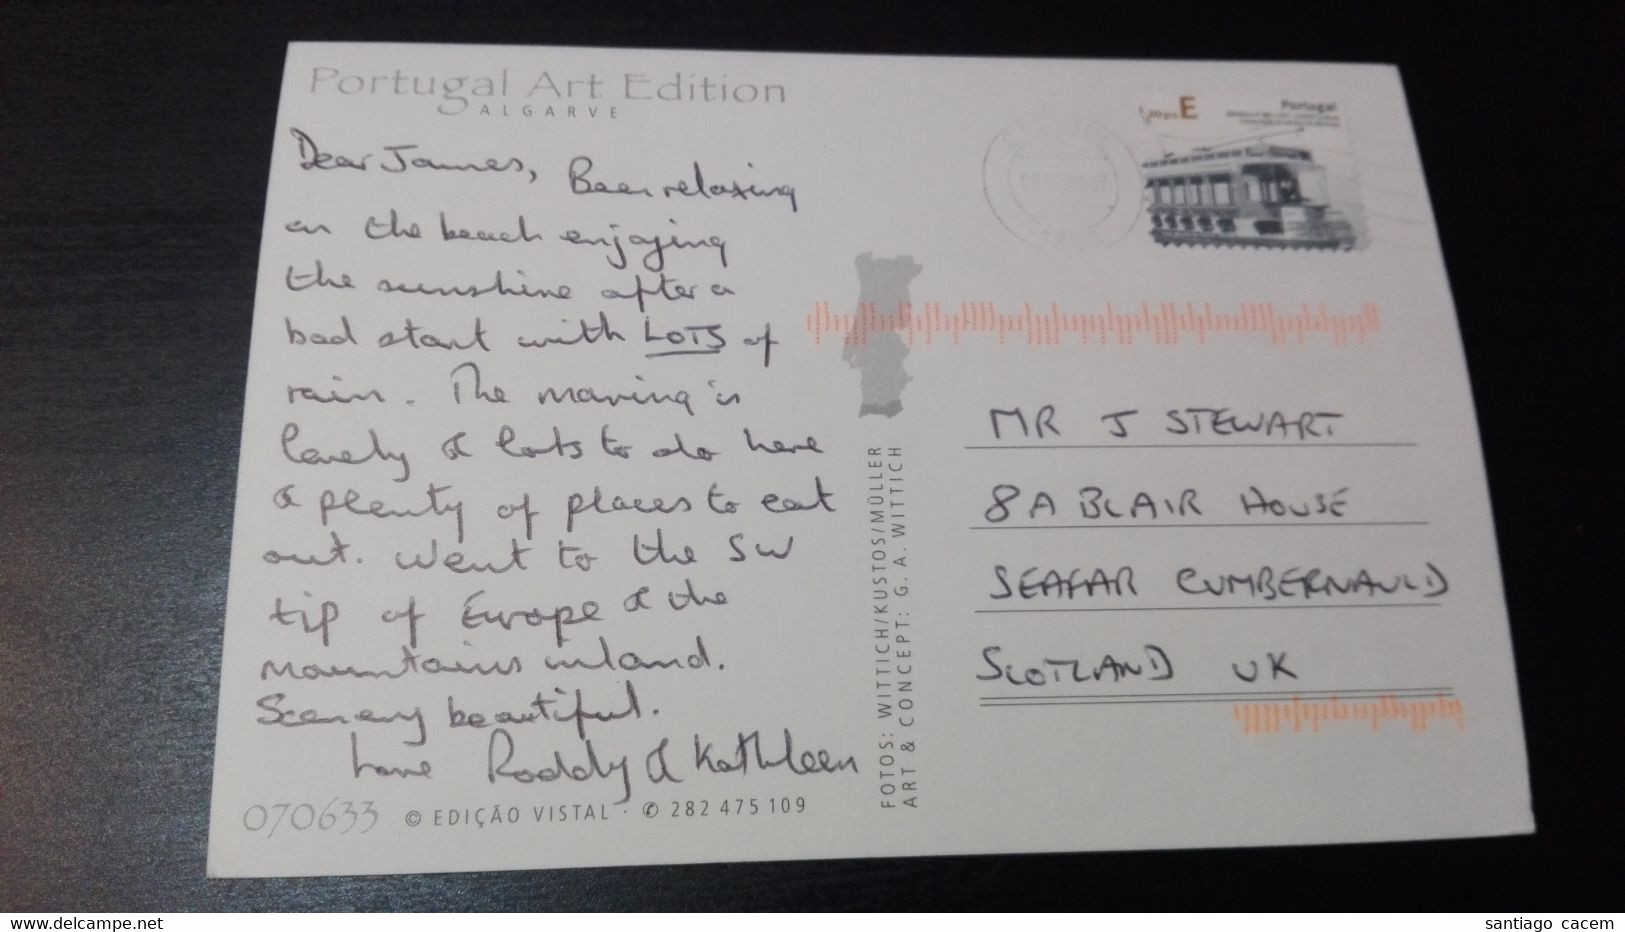 Portugal Art Edition
ALGARVE
Dear James, Been relaxing
on the beach enjoying
the sunshine after a
bad start with LOTS of
rain. The marina is
lovely & lots to do here
& plenty of places to eat
out. Went to the SW
tip of Europe & the
mountains inland.
Scenery beautiful.
Love Roddy & Kathleen
070633 © EDIÇÃO VISTAL · ✆ 282 475 109
FOTOS: WITTICH/KUSTOS/MÜLLER
ART & CONCEPT: G. A. WITTICH
E
Portugal
MR J STEWART
8A BLAIR HOUSE
SEAFAR CUMBERNAULD
SCOTLAND UK
www.delcampe.net
santiago cacem